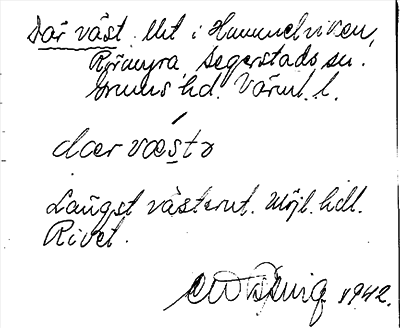 Där väst. Ut i Hammelviken,
Rörmyra Segerstads sn.
Grums hd. Värml. l.
dær væstə
Längst västerut. Möjl. hdl.
Rivel.
1942.